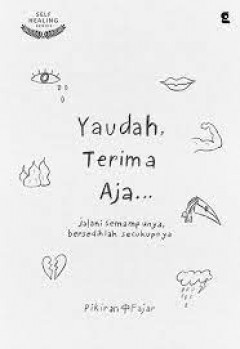 SELF
HEALING
SERIES
Yaudah,
Terima
Aja...
jalani semampunya,
bersedihlah secukupnya
Pikiran Fajar